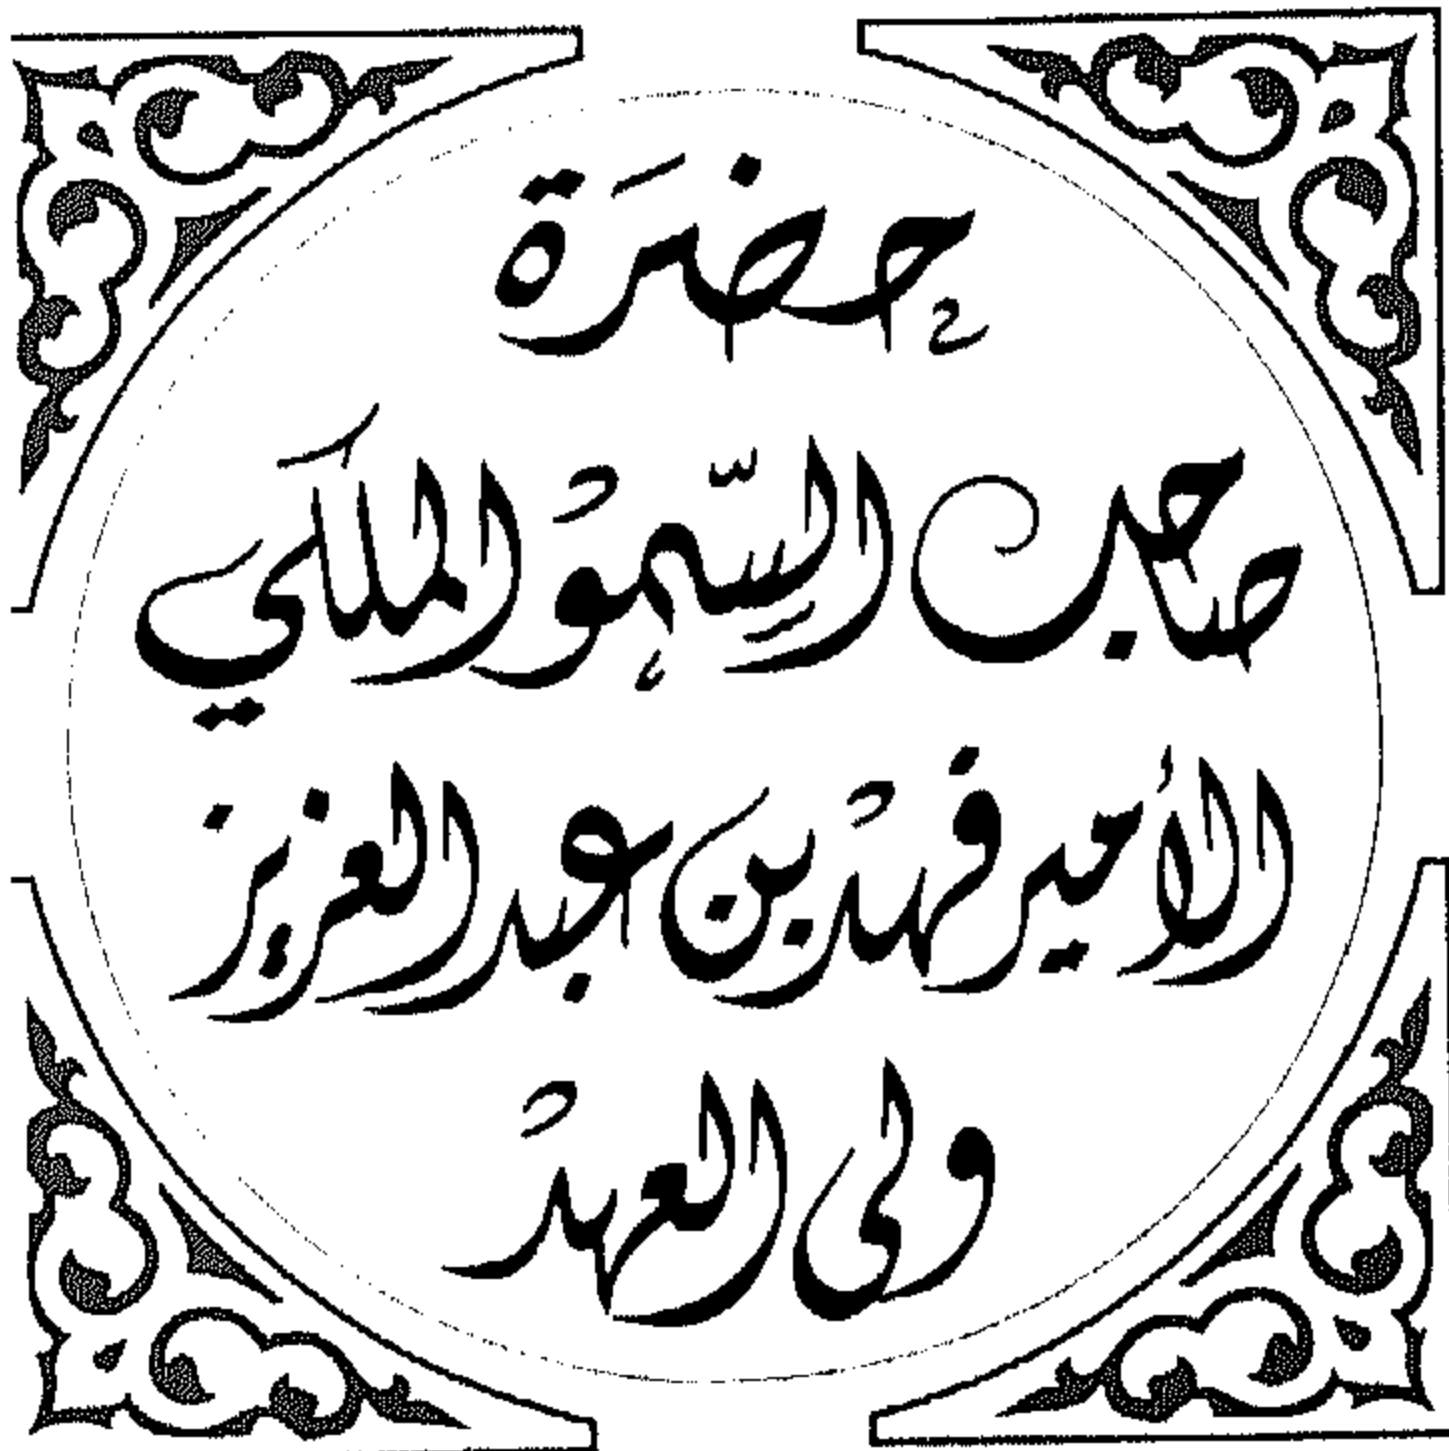 حضرَة
صاحب السّموْ الملكي
الأمير فهدْ بن عبد العزيز
ولى العهدْ